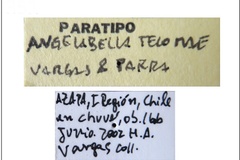 PARATIPO
ANGELABELLA TELONAE
VARGAS & PARRA
AZAPA, I Región, Chile
en chuvú, 05.166
Junio. 2002 H.A.
Vargas coll.